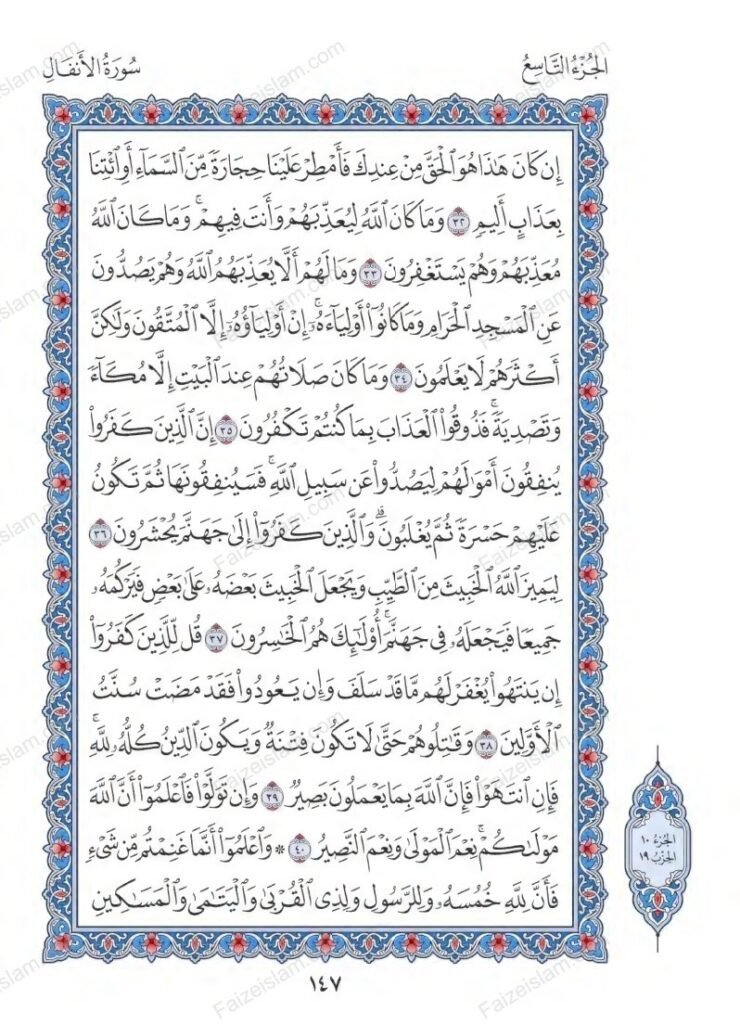 الجُزْءُ التَّاسِعُ
سُورَةُ الأَنفَالِ
إِن كَانَ هَٰذَا هُوَ ٱلْحَقَّ مِنْ عِندِكَ فَأَمْطِرْ عَلَيْنَا حِجَارَةً مِّنَ ٱلسَّمَآءِ أَوِ ٱئْتِنَا
بِعَذَابٍ أَلِيمٍ ٣٢ وَمَا كَانَ ٱللَّهُ لِيُعَذِّبَهُمْ وَأَنتَ فِيهِمْۚ وَمَا كَانَ ٱللَّهُ
مُعَذِّبَهُمْ وَهُمْ يَسْتَغْفِرُونَ ٣٣ وَمَا لَهُمْ أَلَّا يُعَذِّبَهُمُ ٱللَّهُ وَهُمْ يَصُدُّونَ
عَنِ ٱلْمَسْجِدِ ٱلْحَرَامِ وَمَا كَانُوٓا۟ أَوْلِيَآءَهُۥٓۚ إِنْ أَوْلِيَآؤُهُۥٓ إِلَّا ٱلْمُتَّقُونَ وَلَٰكِنَّ
أَكْثَرَهُمْ لَا يَعْلَمُونَ ٣٤ وَمَا كَانَ صَلَاتُهُمْ عِندَ ٱلْبَيْتِ إِلَّا مُكَآءً
وَتَصْدِيَةًۚ فَذُوقُوا۟ ٱلْعَذَابَ بِمَا كُنتُمْ تَكْفُرُونَ ٣٥ إِنَّ ٱلَّذِينَ كَفَرُوا۟
يُنفِقُونَ أَمْوَٰلَهُمْ لِيَصُدُّوا۟ عَن سَبِيلِ ٱللَّهِۚ فَسَيُنفِقُونَهَا ثُمَّ تَكُونُ
عَلَيْهِمْ حَسْرَةً ثُمَّ يُغْلَبُونَۗ وَٱلَّذِينَ كَفَرُوٓا۟ إِلَىٰ جَهَنَّمَ يُحْشَرُونَ ٣٦
لِيَمِيزَ ٱللَّهُ ٱلْخَبِيثَ مِنَ ٱلطَّيِّبِ وَيَجْعَلَ ٱلْخَبِيثَ بَعْضَهُۥ عَلَىٰ بَعْضٍ فَيَرْكُمَهُۥ
جَمِيعًا فَيَجْعَلَهُۥ فِى جَهَنَّمَۚ أُو۟لَٰٓئِكَ هُمُ ٱلْخَٰسِرُونَ ٣٧ قُل لِّلَّذِينَ كَفَرُوٓا۟
إِن يَنتَهُوا۟ يُغْفَرْ لَهُم مَّا قَدْ سَلَفَ وَإِن يَعُودُوا۟ فَقَدْ مَضَتْ سُنَّتُ
ٱلْأَوَّلِينَ ٣٨ وَقَٰتِلُوهُمْ حَتَّىٰ لَا تَكُونَ فِتْنَةٌ وَيَكُونَ ٱلدِّينُ كُلُّهُۥ لِلَّهِۚ
فَإِنِ ٱنتَهَوْا۟ فَإِنَّ ٱللَّهَ بِمَا يَعْمَلُونَ بَصِيرٌ ٣٩ وَإِن تَوَلَّوْا۟ فَٱعْلَمُوٓا۟ أَنَّ ٱللَّهَ
مَوْلَىٰكُمْۚ نِعْمَ ٱلْمَوْلَىٰ وَنِعْمَ ٱلنَّصِيرُ ٤٠ ۞ وَٱعْلَمُوٓا۟ أَنَّمَا غَنِمْتُم مِّن شَىْءٍ
فَأَنَّ لِلَّهِ خُمُسَهُۥ وَلِلرَّسُولِ وَلِذِى ٱلْقُرْبَىٰ وَٱلْيَتَٰمَىٰ وَٱلْمَسَٰكِينِ
الجُزءُ ١٠
الحِزبُ ١٩
١٤٧
Faizeislam.com